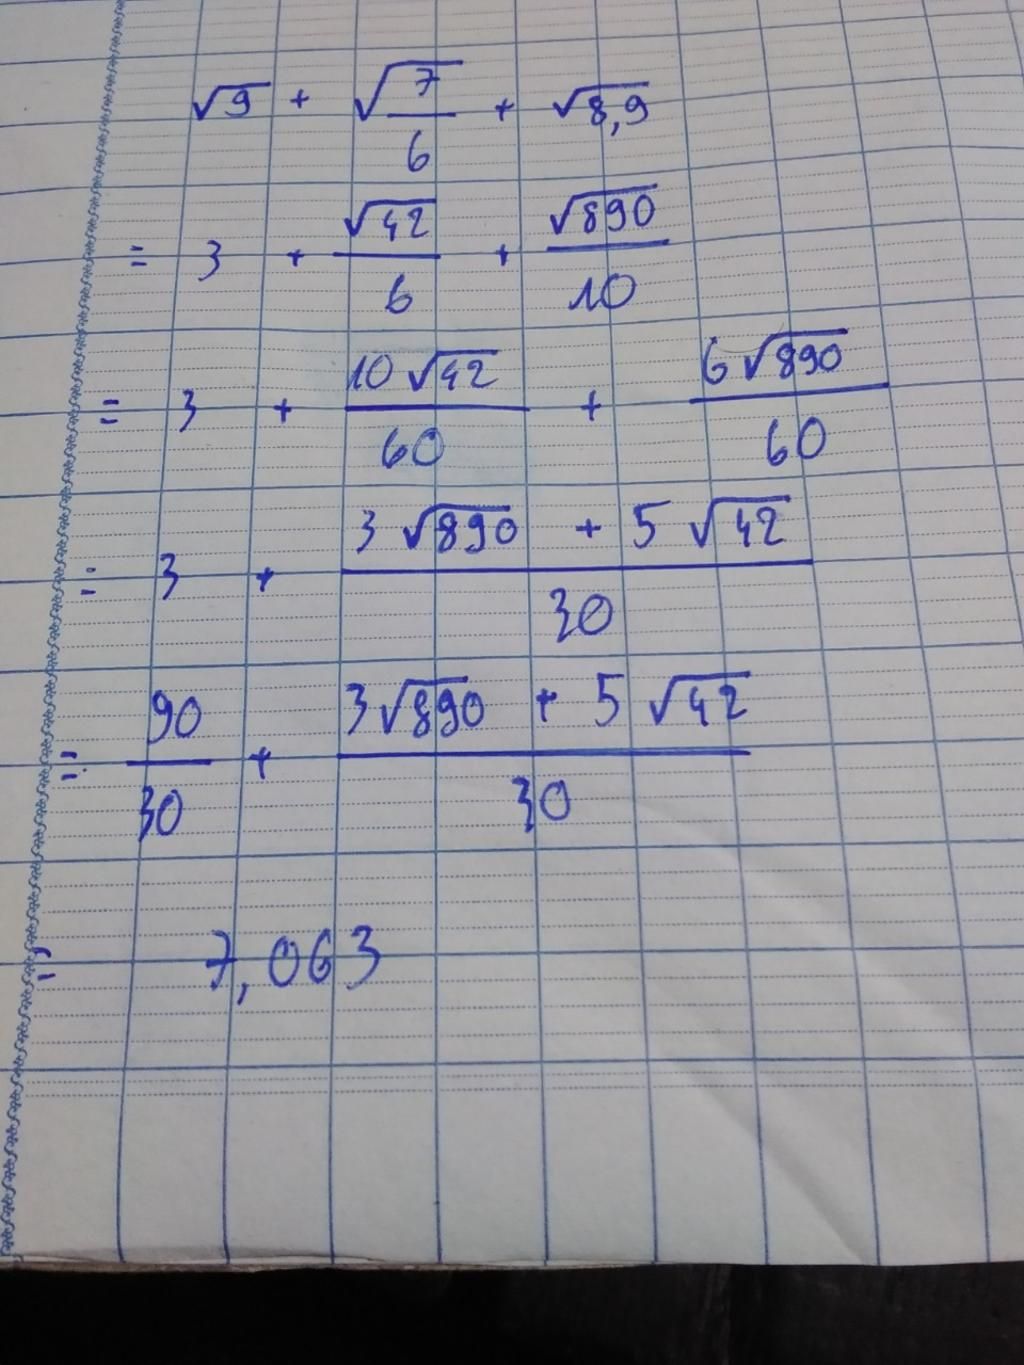 √9 + √7/6 + √8,9
= 3 + √42/6 + √890/10
= 3 + 10√42/60 + 6√890/60
= 3 + (3√890 + 5√42)/30
= 90/30 + (3√890 + 5√42)/30
= 7,063